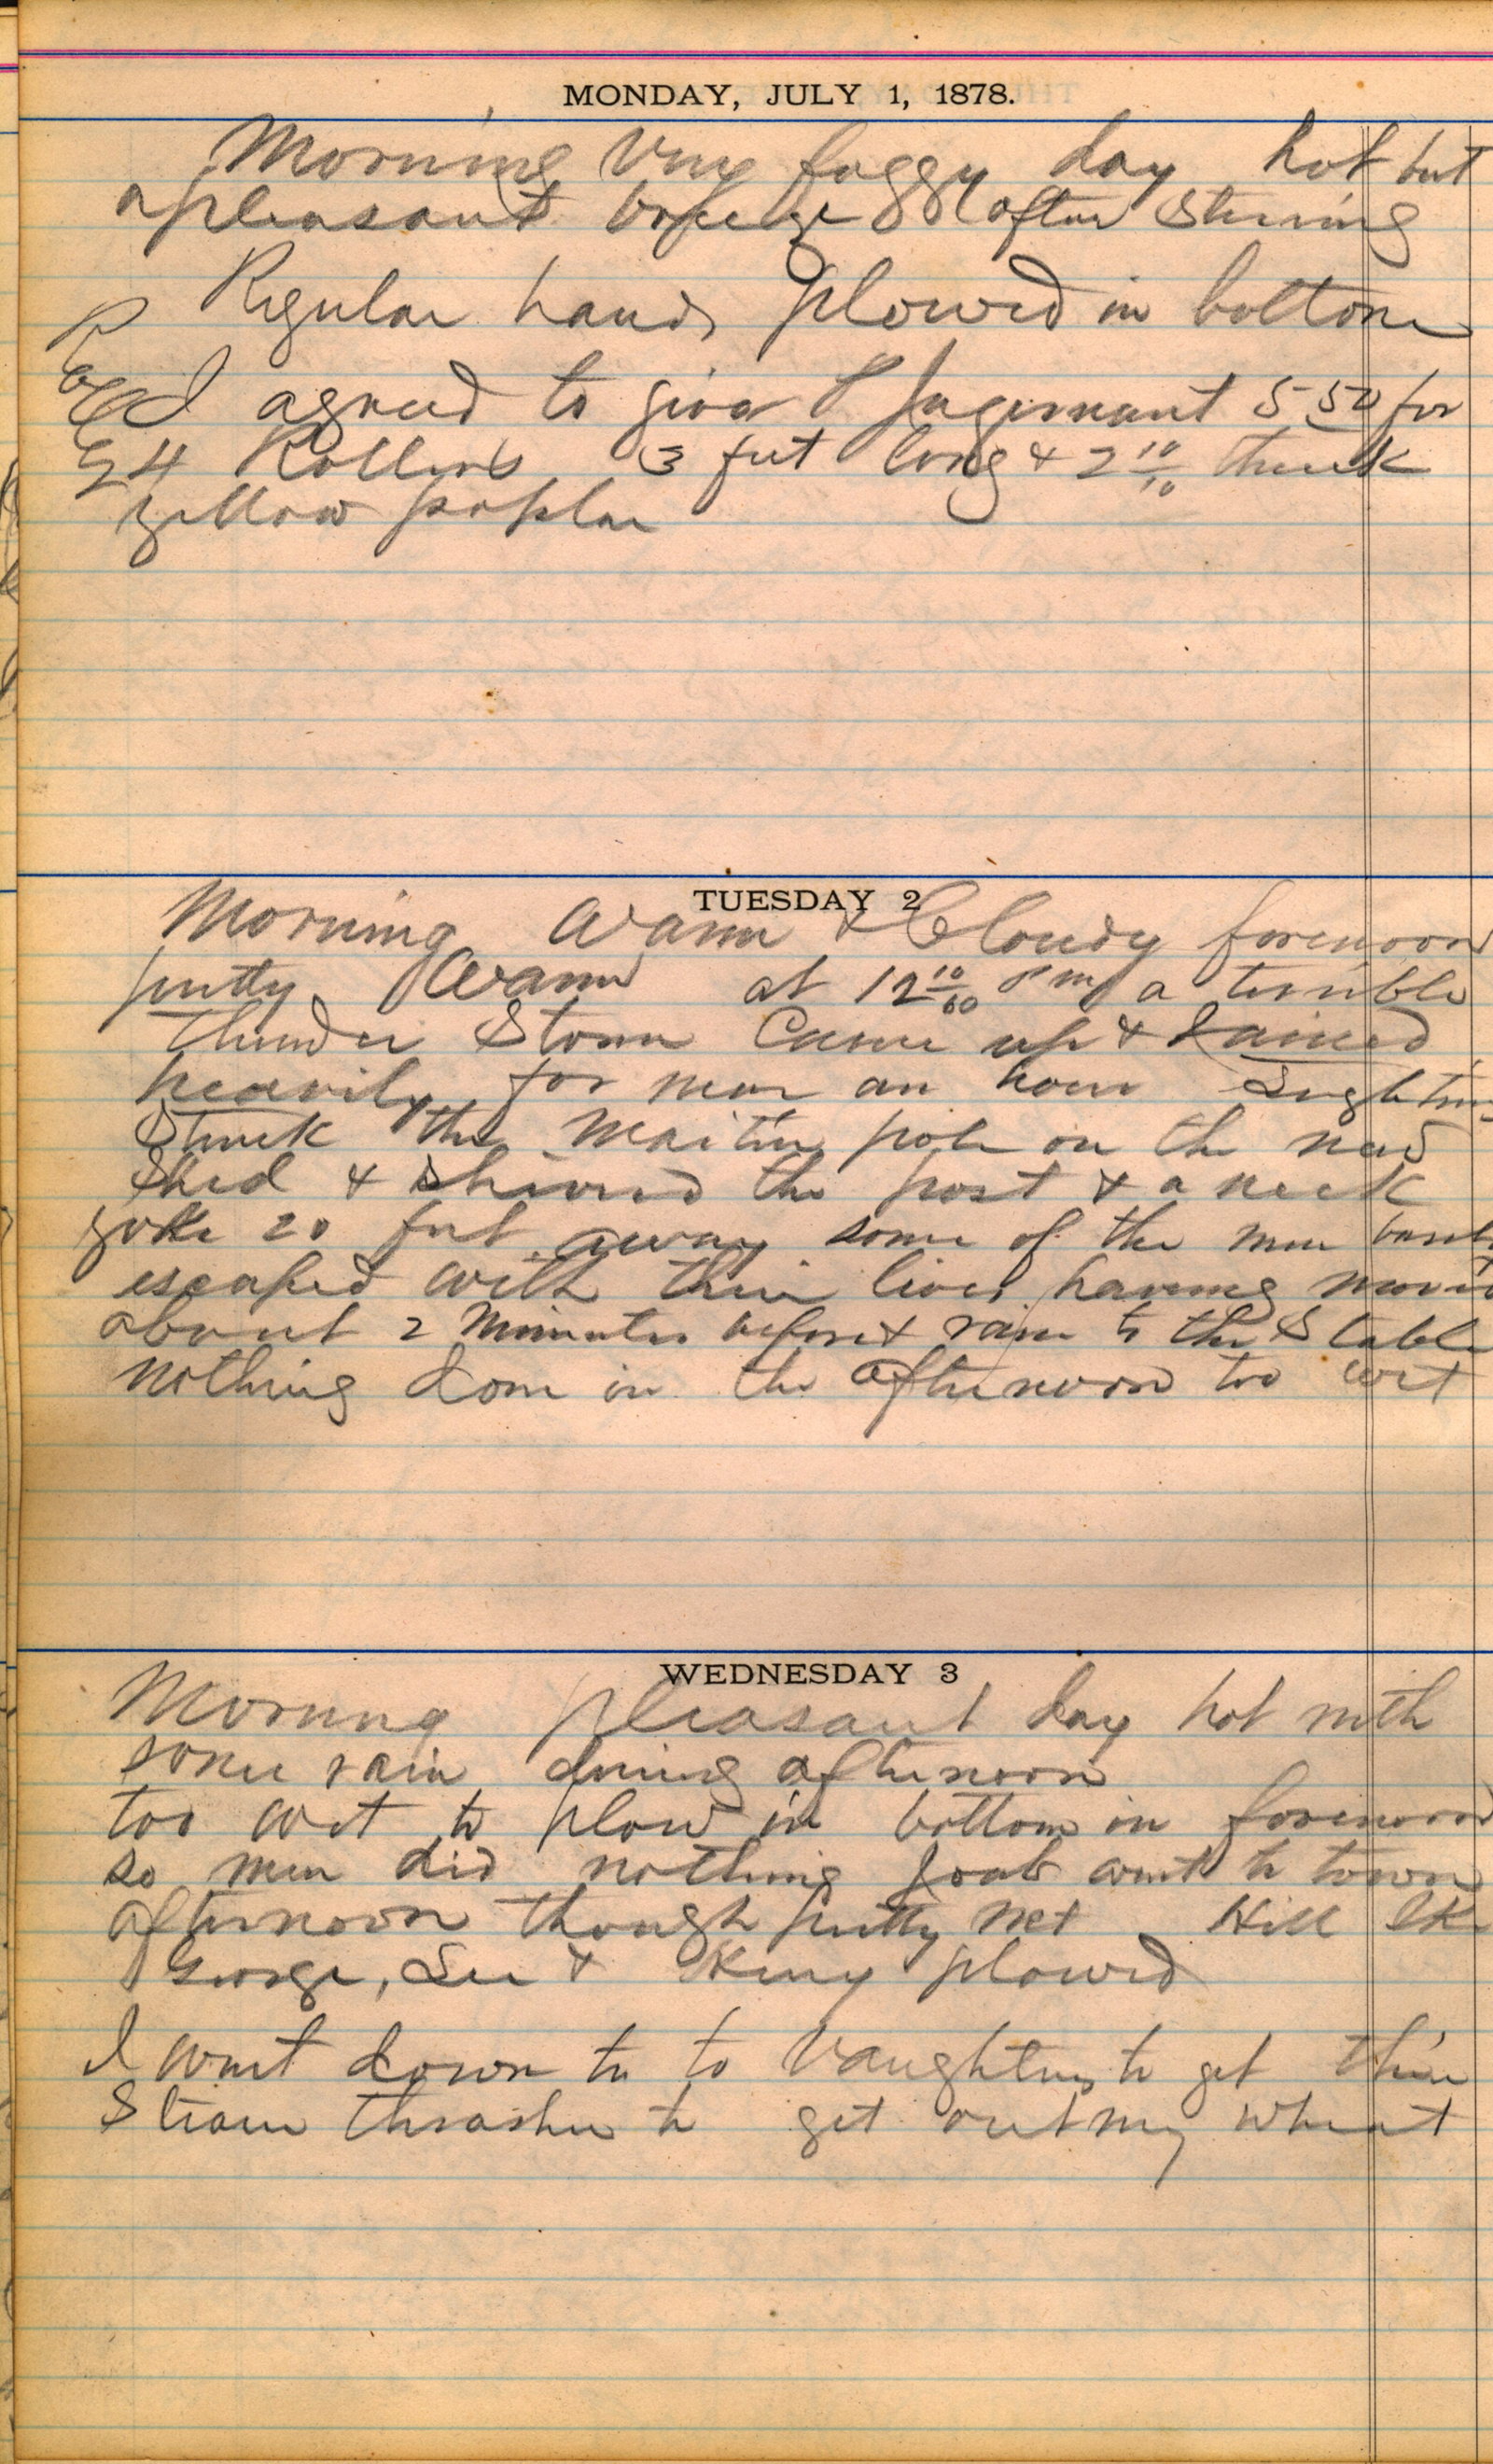 MONDAY, JULY 1, 1878.
Morning very foggy day hot but
a pleasant breeze after
Regular hands plowed in bottom
I agreed to give P 5 50 for
4 Rollers 3 feet long & 2 10/10 thick
yellow poplar
TUESDAY 2
Morning Warm & Cloudy forenoon
pretty Warm at 12 10/60 P m a terrible
thunder Storm Came up & Rained
heavily for near an hour Lightning
Struck the pole on the new
Shed & shivered the post & a neck
yoke 20 feet away some of the men barely
escaped with their lives having moved
about 2 Minutes before & ran to the Stable
nothing done in the afternoon too wet
WEDNESDAY 3
Morning pleasant day hot with
some rain during afternoon
too wet to plow in bottom in forenoon
so men did nothing went to town
afternoon though pretty wet Hill Ike
George, Lee & King plowed
I went down to to Vaughters to get their
Steam thrasher to get out my wheat